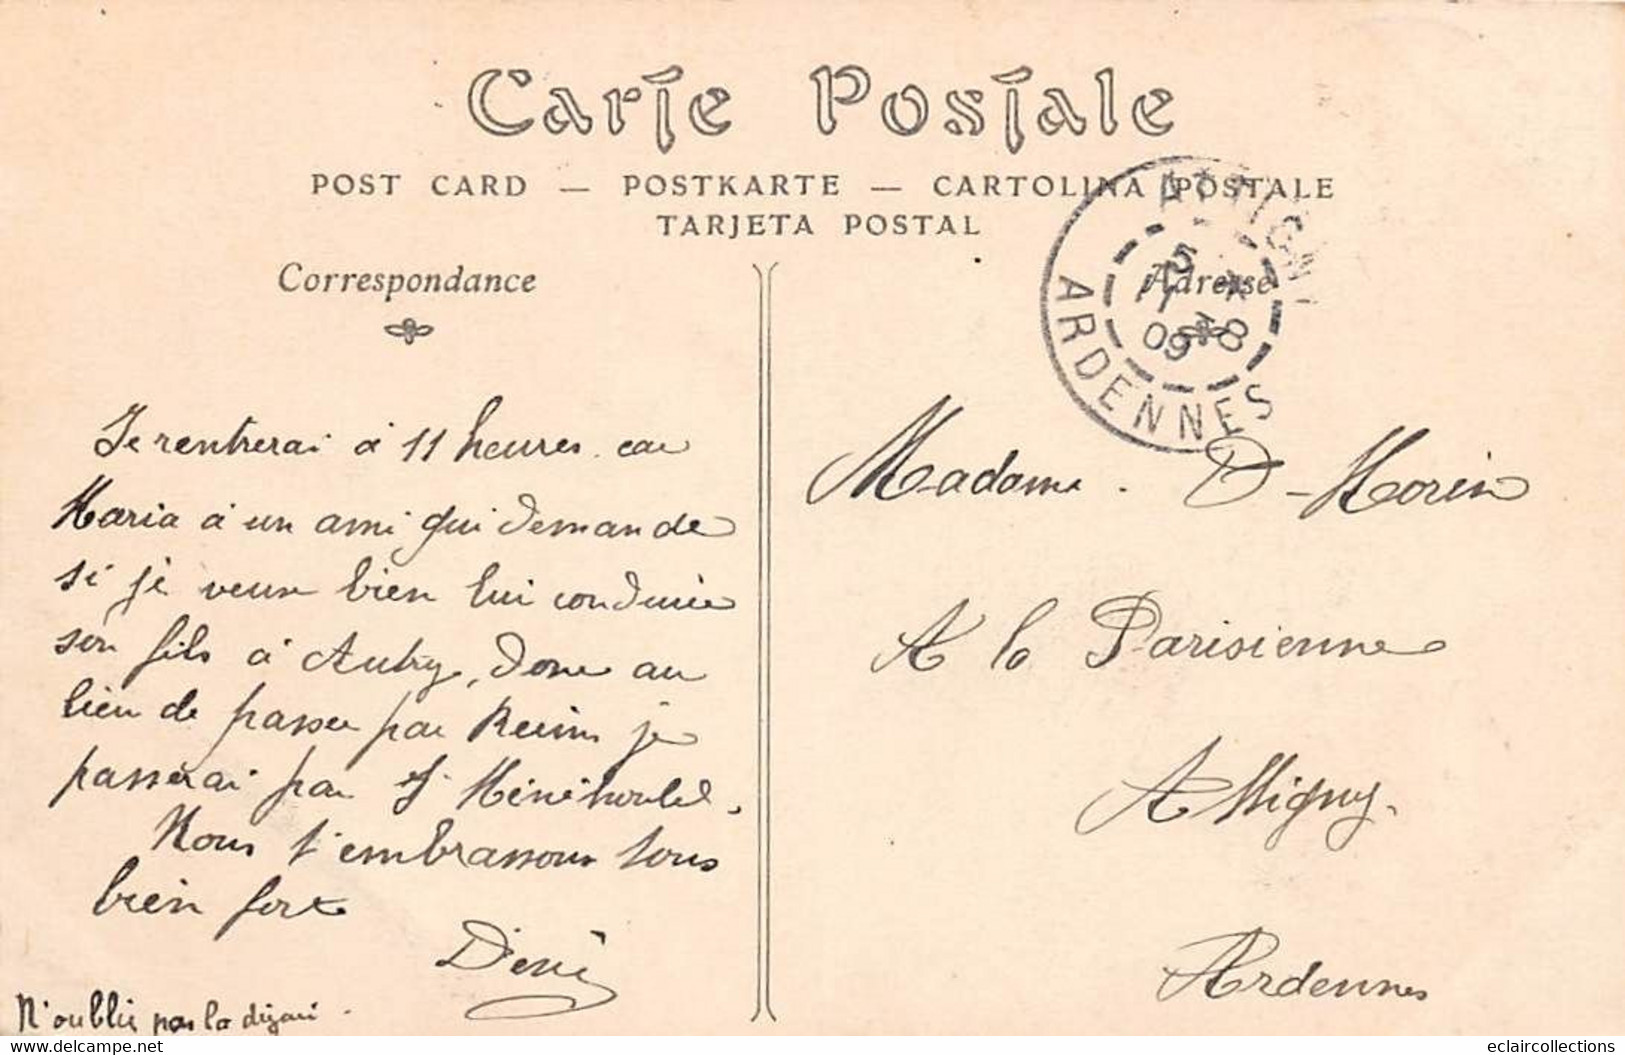 Carte Postale
POST CARD — POSTKARTE — CARTOLINA POSTALE
TARJETA POSTAL
Correspondance
Je rentrerai à 11 heures. car
Maria à un ami qui demande
si je veux bien lui conduire
son fils à Autry, donc au
lieu de passer par Reims je
passerai par St Ménéhould.
Nous t'embrassons tous
bien fort
Déni
N'oublie pas la
Adresse
ATTIGNY
5 *
11 - 8
09
ARDENNES
Madame. D - Morin
A la Parisienne
Attigny.
Ardennes
eclaircollections
www.delcampe.net